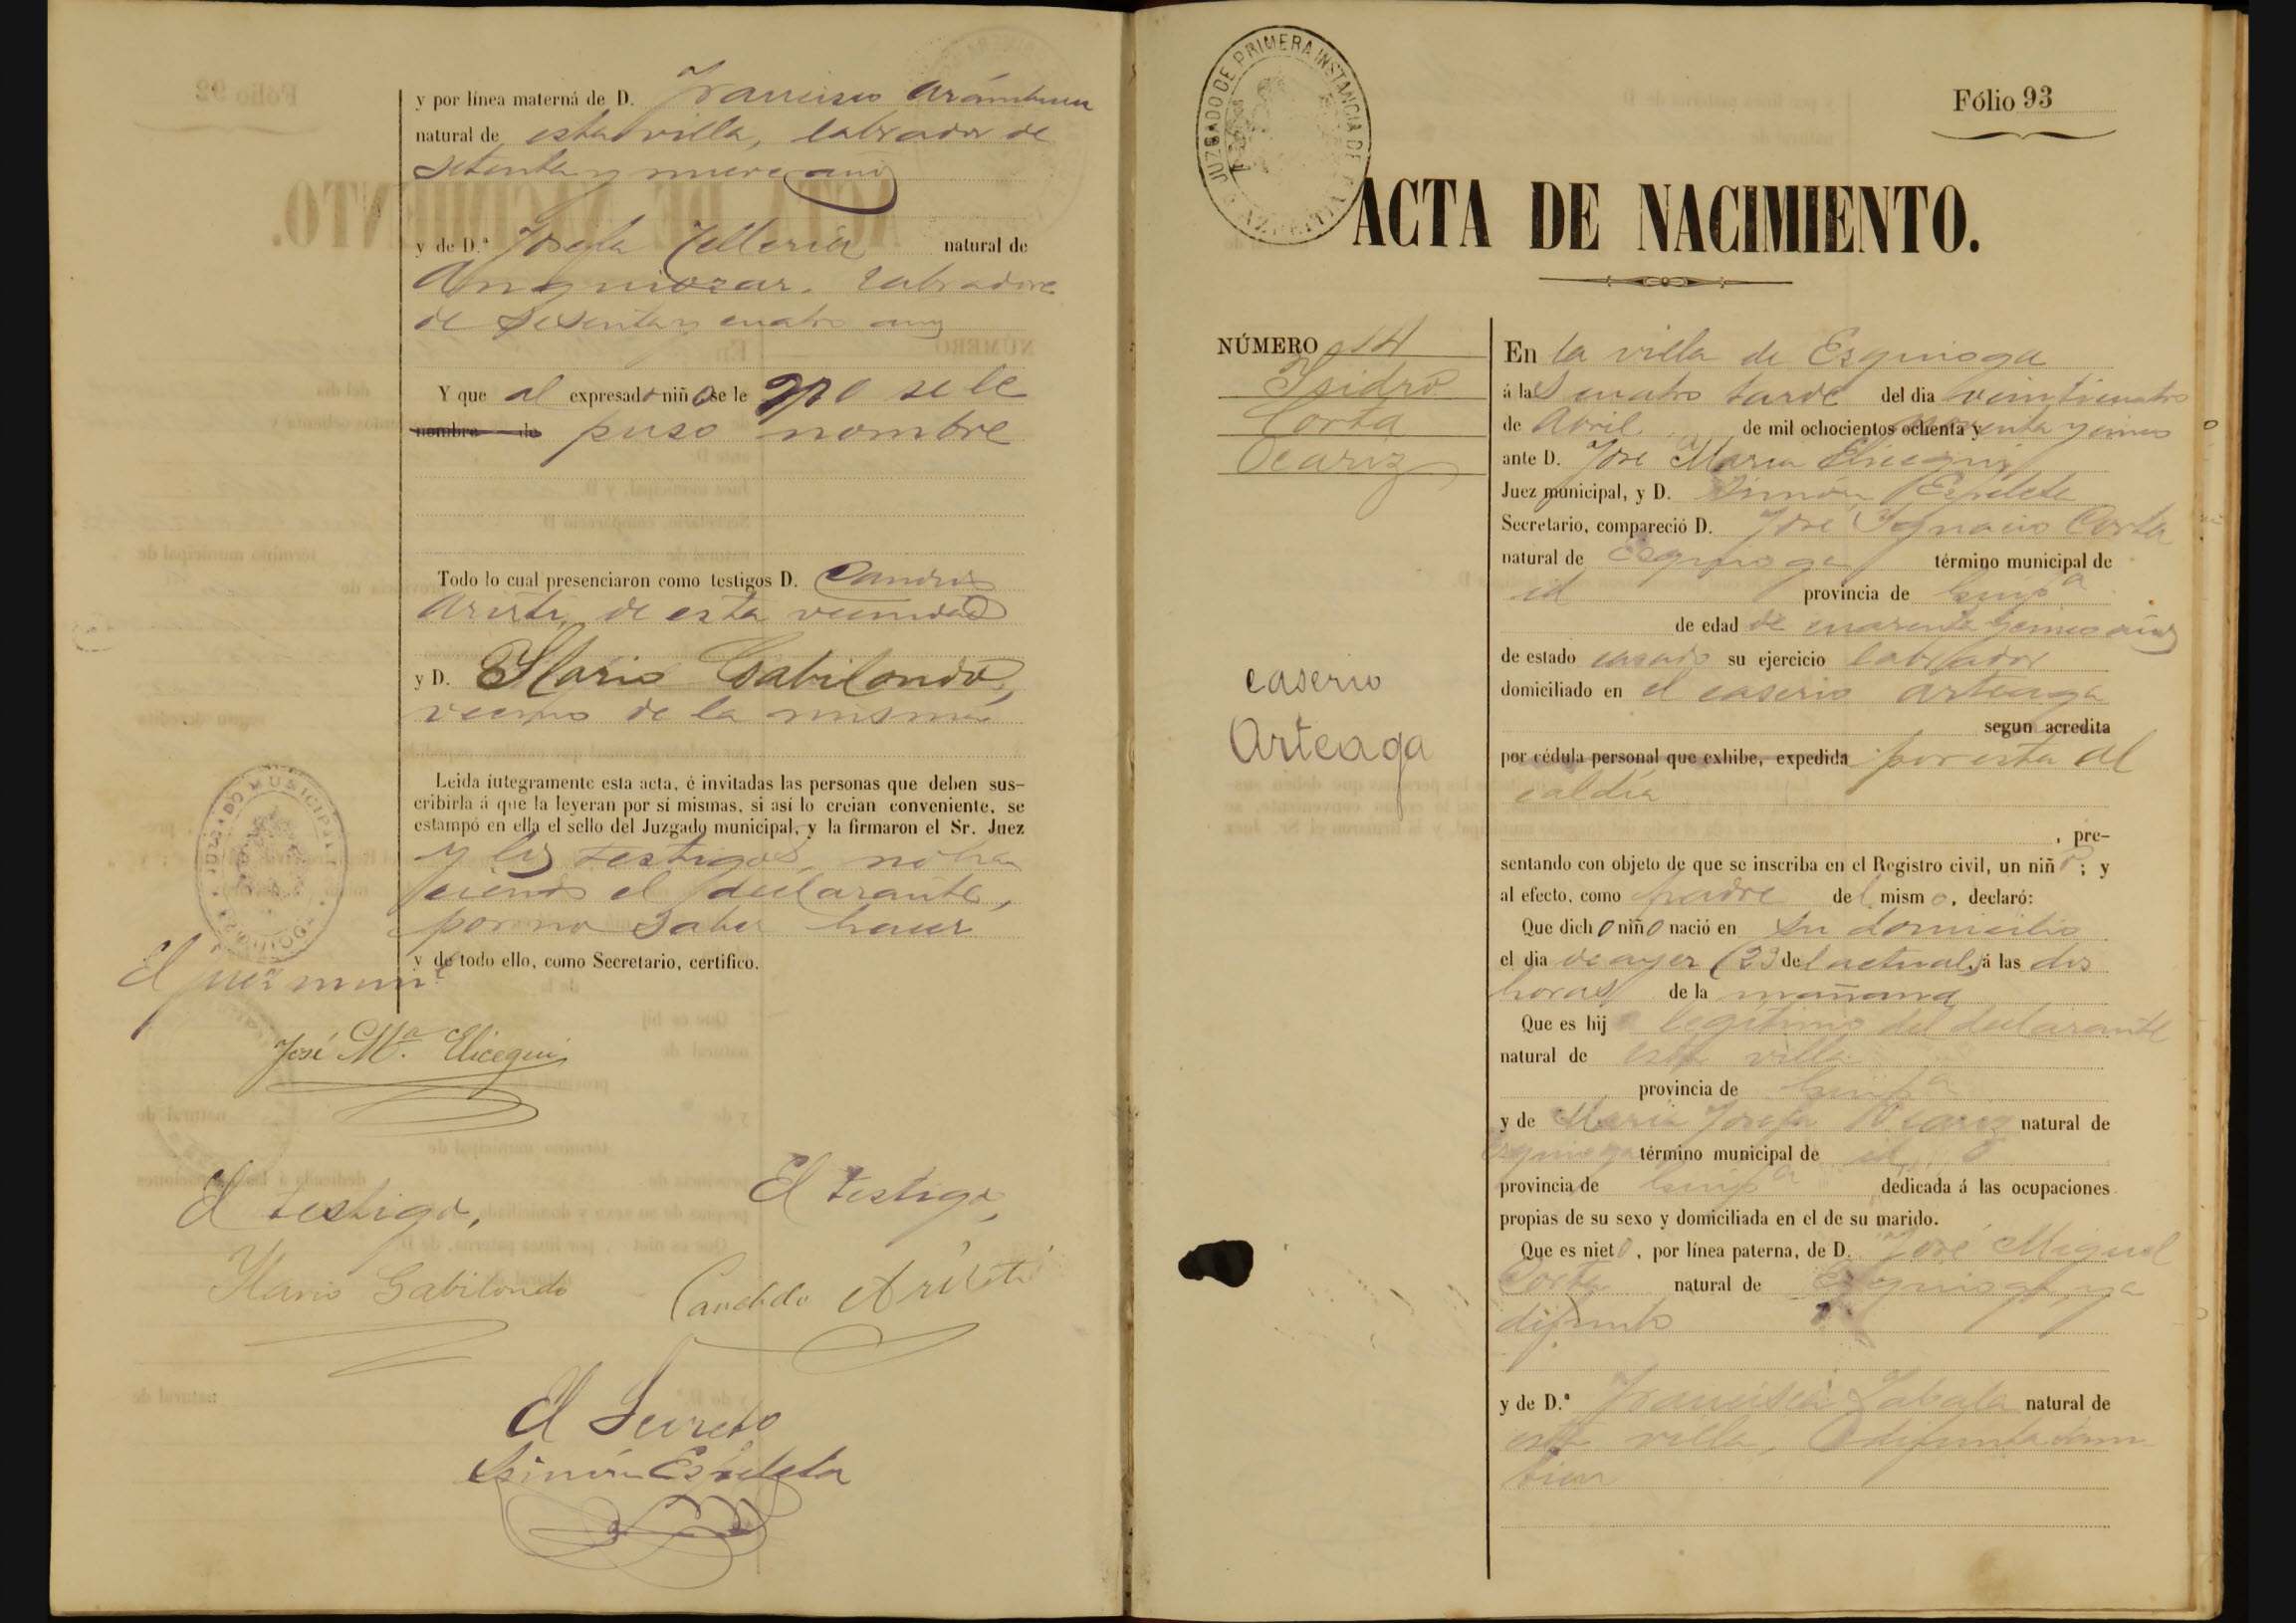 y por línea materná de D. Francisco Arámburu
natural de esta villa, labrador de
setenta y nueve años
y de D.ª Josefa Telleria natural de
Anguiozar. Labradora
de sesenta y cuatro años
Y que al expresado niño se le no se le
nombre de puso nombre
Todo lo cual presenciaron como testigos D. Candido
Aristi, de esta vecindad
y D. Ylario Gabilondo,
vecino de la misma
Leida integramente esta acta, é invitadas las personas que deben sus-
cribirla á que la leyeran por sí mismas, si así lo creian conveniente, se
estampó en ella el sello del Juzgado municipal, y la firmaron el Sr. Juez
y los testigos, no ha
ciendo el declarante,
por no saber hacer
y de todo ello, como Secretario, certifico.
El juez mun.l
José M.ª Elicegui
El testigo,
El testigo,
Ylario Gabilondo
Candido Aristi
El Secreto
Simón Espeleta
JUZGADO DE PRIMERA INSTANCIA DE AZPEITIA
Fólio 93
ACTA DE NACIMIENTO.
NÚMERO 14
Isidro
Corta
Ocariz
caserio
Arteaga
En la villa de Esquioga
á las cuatro tarde del dia veinticuatro
de Abril de mil ochocientos ochenta y noventa y cinco
ante D. José Maria Elicegui
Juez municipal, y D. Simón Espeleta
Secretario, compareció D. José Ignacio Corta
natural de Esquioga término municipal de
id provincia de Guip.ª
de edad de cuarenta y cinco años
de estado casado su ejercicio labrador
domiciliado en el caserio Arteaga
segun acredita
por cédula personal que exhibe, expedida por esta al
caldía
, pre-
sentando con objeto de que se inscriba en el Registro civil, un niño; y
al efecto, como padre del mismo, declaró:
Que dicho niño nació en su domicilio
el dia de ayer (23 del actual) á las dos
horas de la mañana
Que es hijo legítimo del declarante
natural de esta villa
provincia de Guip.ª
y de Maria Josefa Ocariz natural de
Esquioga término municipal de id
provincia de Guip.ª dedicada á las ocupaciones
propias de su sexo y domiciliada en el de su marido.
Que es nieto, por línea paterna, de D. José Miguel
Corta natural de Esquioga, ya
difunto
y de D.ª Francisca Zabala natural de
esta villa, difunta tam
bien